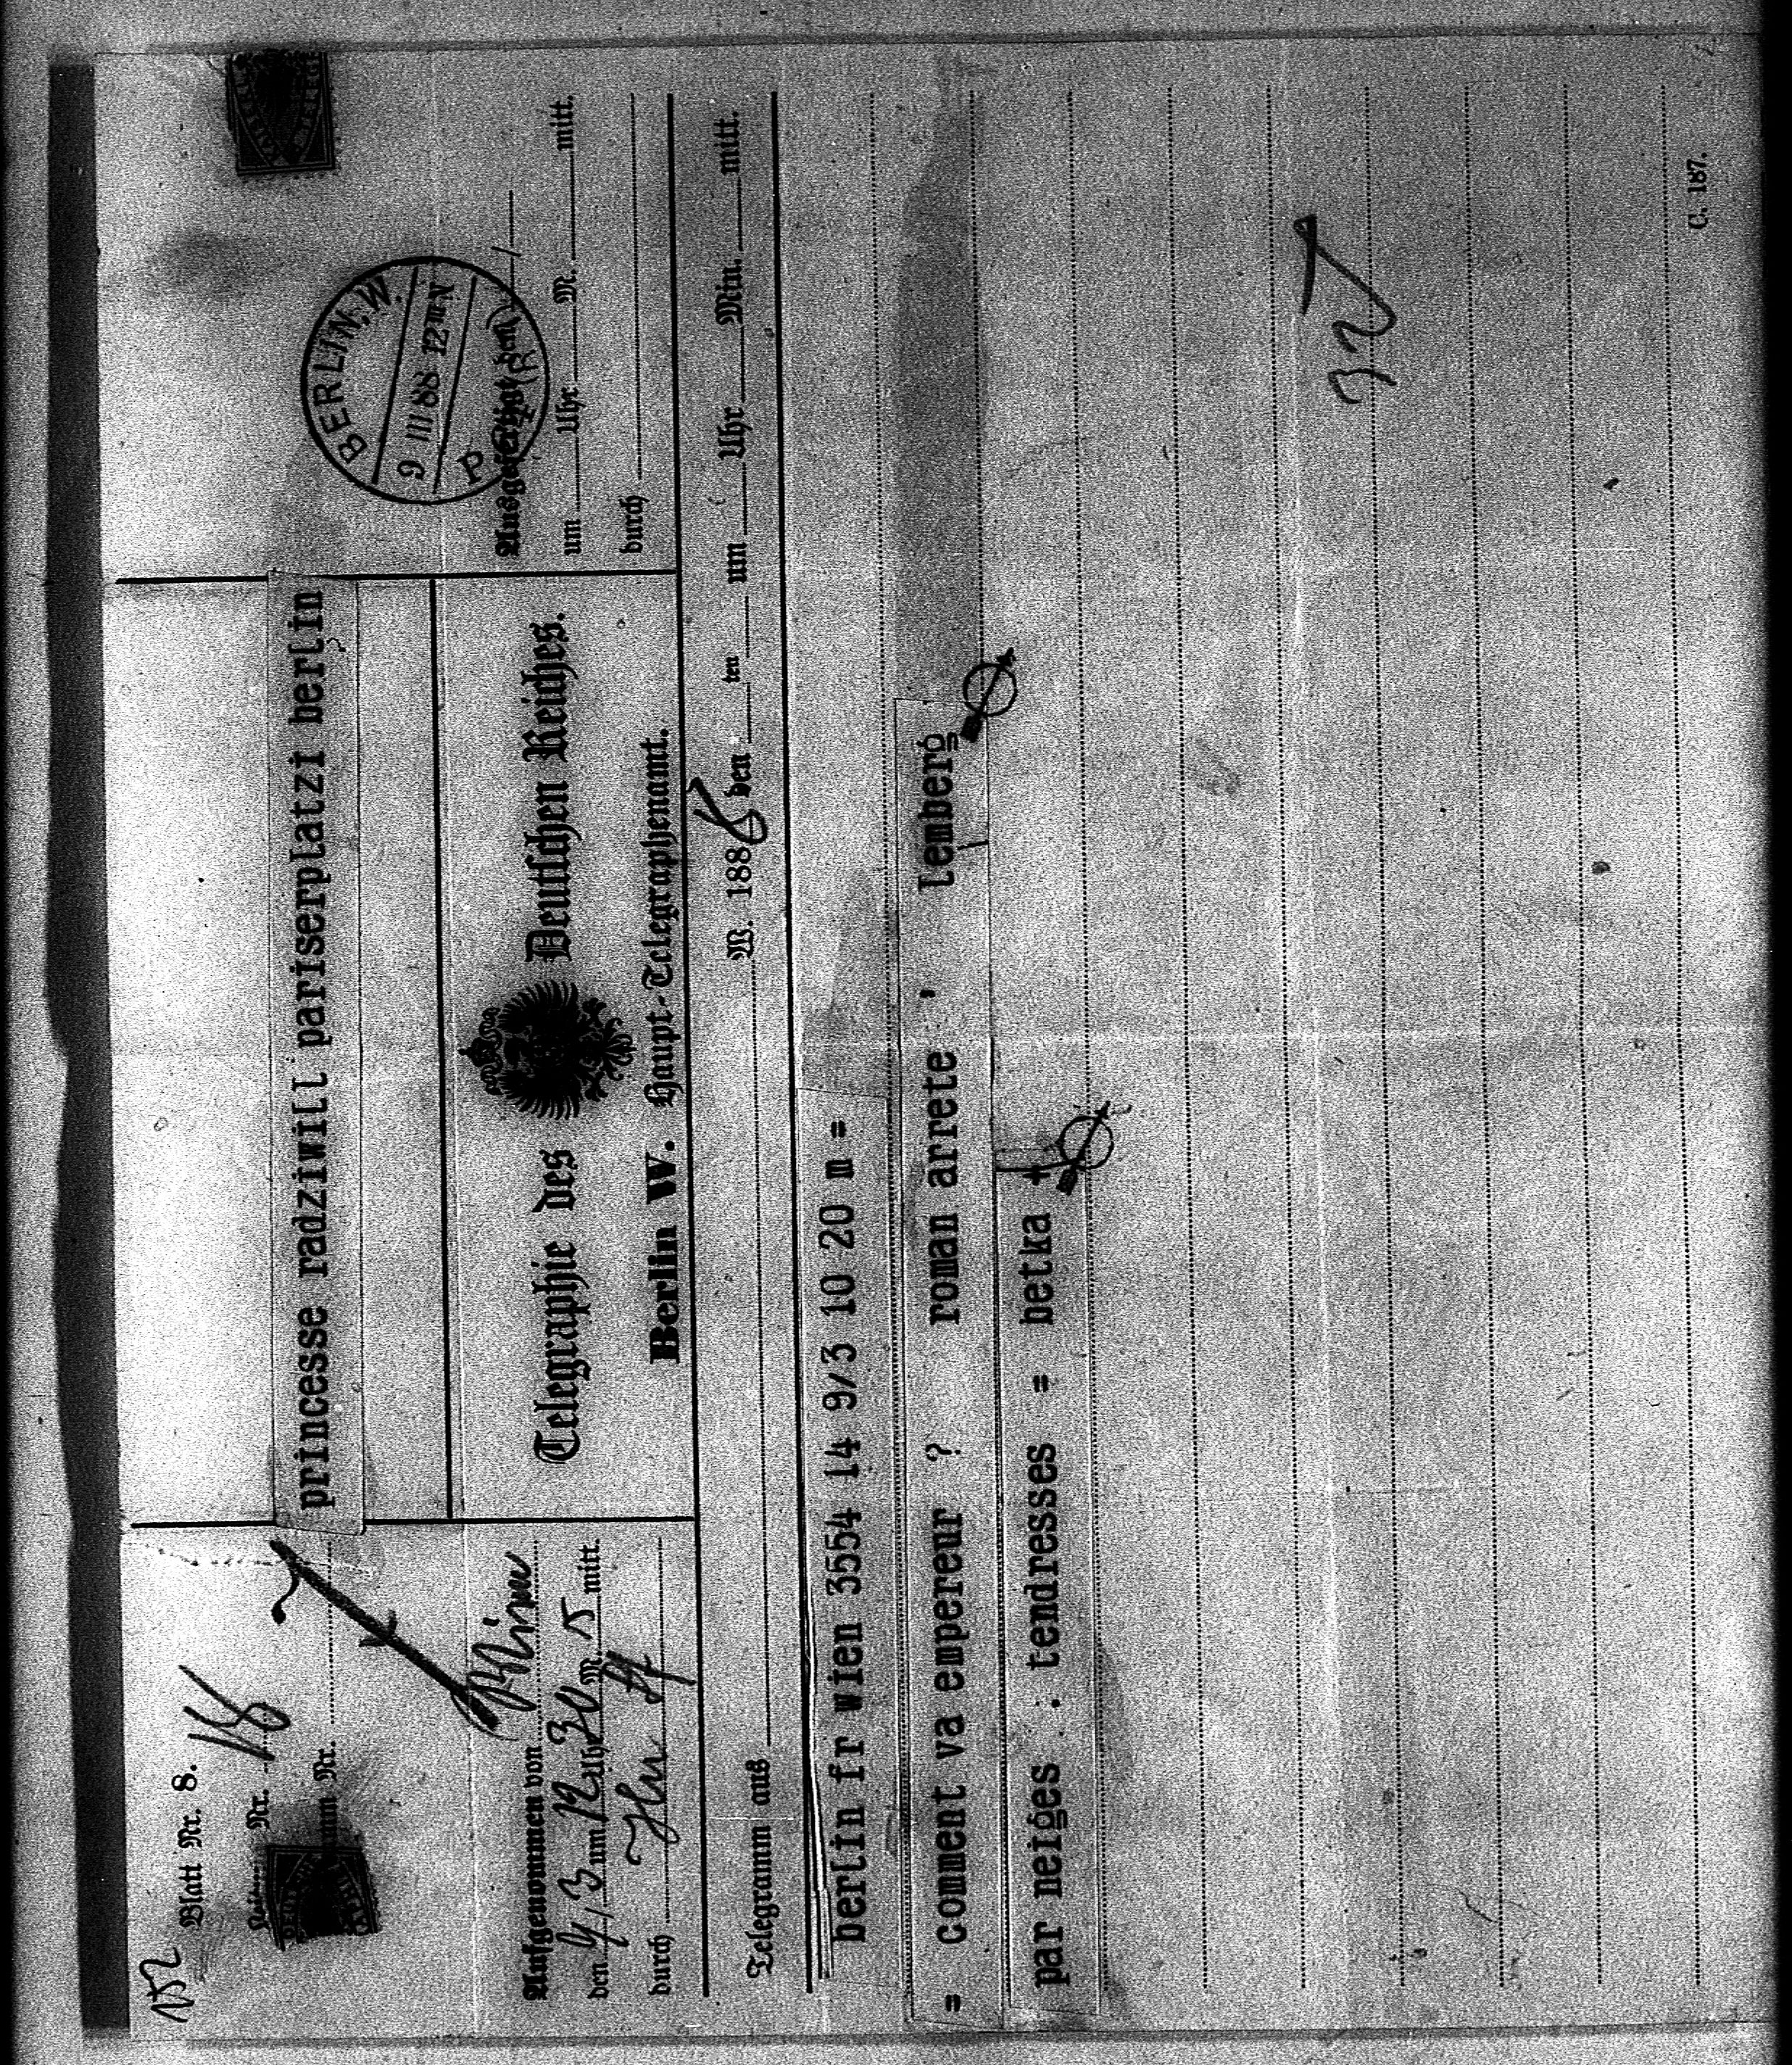 152
Blatt Nr. 8.
Nr.
Nr.
princesse radziwill pariserplatzi berlin
BERLIN,W.
9 III 88 12
P
Aufgenommen von Wien
den 9/3 um 12 Uhr 30 M mitt.
durch
Telegraphie des Deutschen Reiches.
Berlin W. Haupt-Telegraphenamt.
Ausgefertigt den
um Uhr M. mitt.
durch
Telegramm aus W. 1888 den ten um Uhr Min. mitt.
berlin fr wien 3554 14 9/3 10 20 m =
= comment va empereur ? roman arrete , lemberg
par neiges . tendresses = betka +
C. 187.